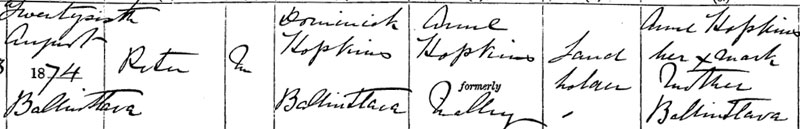 Twentysixth
August
1874
Ballinttava
Peter
M
Dominick
Hopkins
Ballinttava
Anne
Hopkins
formerly
Malley
Land
holder
Anne Hopkins
her x mark
Mother
Ballinttava